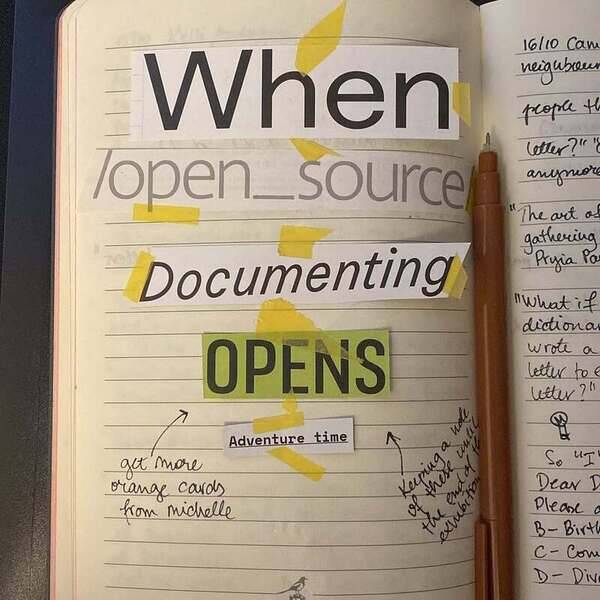 When
/open_source
Documenting
OPENS
Adventure time
get more
orange cards
from michelle
Keeping a note
of these until
the end of the
exhibition
16/10
neighbour
people
letter?"
anymore
"The art of
gathering
Pryia
"What if
wrote a
letter to
letter?"
So "I"
Dear
Please
B-
C-
D-